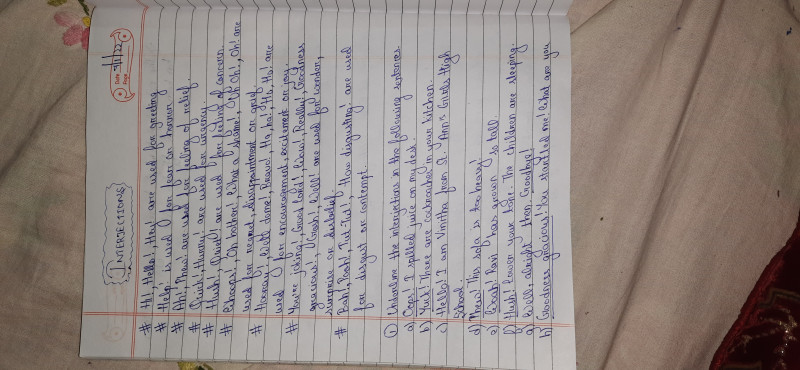 Date 9/1/22
Page
INTERJECTIONS
# Hi!, Hello!, Hey! are used for greeting
# Help! is used for fear or horror
# Ah!, Phew! are used for feeling of relief.
# Quick!, Hurry! are used for urgency.
# Hush!, Quiet! are used for feeling of concern.
# Whoops!, Oh bother! What a shame!, Oh Oh!, Oh! are
used for regret, disappointment or grief
# Hooray!, Well done!, Bravo!, Ha, ha!, Ho, Ho! are
used for encouragement, excitement or joy.
# You're joking!, Good Lord!, Wow!, Really!, Goodness
gracious!, Gosh!, Well! are used for wonder,
surprise or disbelief.
# Bah!, Pooh!, Tut-Tut!, How disgusting! are used
for disgust or contempt.
① Underline the interjections in the following sentences
a) Oops! I spilled juice on my desk.
b) Yuck! There are cockroaches in your kitchen.
c) Hello! I am Vinitha from St. Ann's Girls High
School.
d) This sofa is too heavy!
e) Ravi has grown so tall
f) Hush! Lower your The children are sleeping.
g) Well, alright then, Goodbye!
h) Goodness gracious! You startled me! What are you